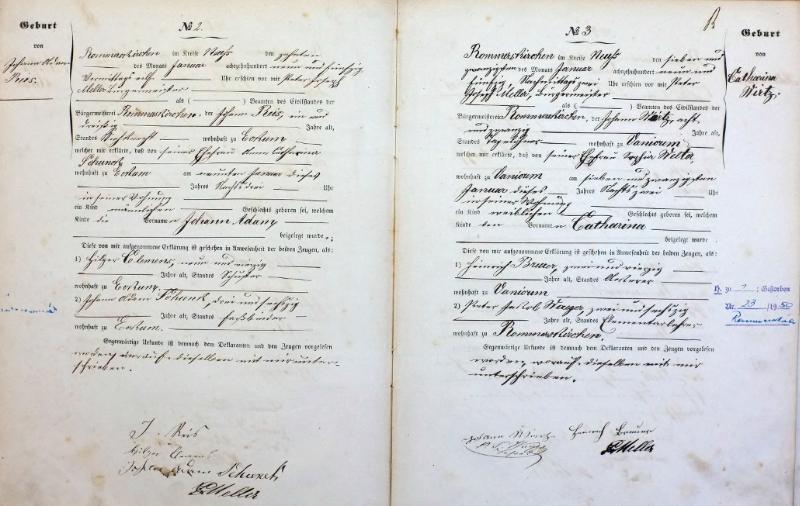 Geburt
von
Johann Adam
Reis.
№ 2.
Rommerskirchen im Kreise Neuß den zehnten
des Monats Januar achtzehnhundert neun und fünfzig
Vormittags elf Uhr erschien vor mir Peter Joseph
Meller Bürgermeister
als ( ) Beamten des Civilstandes der
Bürgermeisterei Rommerskirchen, der Johann Reis, ein und
dreißig Jahre alt,
Standes wohnhaft zu Eckum
welcher mir erklärte, daß von seiner Ehefrau Anna Catharina
Schunck
wohnhaft zu Eckum am neunten Januar dieses
Jahres Nachts drei Uhr
in seiner Wohnung
ein Kind männlichen Geschlechts geboren sei, welchem
Kinde die Vornamen Johann Adam
beigelegt wurde.
Diese von mir aufgenommene Erklärung ist geschehen in Anwesenheit der beiden Zeugen, als:
1) Hilger Clemens, neun und vierzig
Jahre alt, Standes Schuster
wohnhaft zu Eckum,
2) Johann Adam Schunck, drei und sechzig
Jahre alt, Standes Faßbinder
wohnhaft zu Eckum.
Gegenwärtige Urkunde ist demnach dem Deklaranten und den Zeugen vorgelesen
worden, worauf dieselben mit mir unter-
schrieben.
J. Reis
Hilger Clemens
Johann Adam Schunck
Meller
№ 3
Rommerskirchen im Kreise Neuß den sieben und
zwanzigsten des Monats Januar achtzehnhundert neun und
fünfzig Nachmittags zwei Uhr erschien vor mir Peter
Joseph Meller, Bürgermeister
als ( ) Beamten des Civilstandes der
Bürgermeisterei Rommerskirchen, der Johann Wirtz, acht
und zwanzig Jahre alt,
Standes Tagelöhner wohnhaft zu Vanikum
welcher mir erklärte, daß von seiner Ehefrau Sophia
wohnhaft zu Vanikum am sieben und zwanzigsten
Januar dieses Jahres Nachts zwei Uhr
in seiner Wohnung
ein Kind weiblichen Geschlechts geboren sei, welchem
Kinde den Vornamen Catharina
beigelegt wurde.
Diese von mir aufgenommene Erklärung ist geschehen in Anwesenheit der beiden Zeugen, als:
1) Heinrich Breuer, zwei und vierzig
Jahre alt, Standes Ackerer
wohnhaft zu Vanikum
2) Peter Jakob zwei und sechzig
Jahre alt, Standes Elementarlehrer
wohnhaft zu Rommerskirchen.
Gegenwärtige Urkunde ist demnach dem Deklaranten und den Zeugen vorgelesen
worden, worauf dieselben mit mir
unterschrieben.
Johann Wirtz Heinrich Breuer
Meller
Geburt
von
Catharina
Wirtz.
Gestorben
Nr. 23